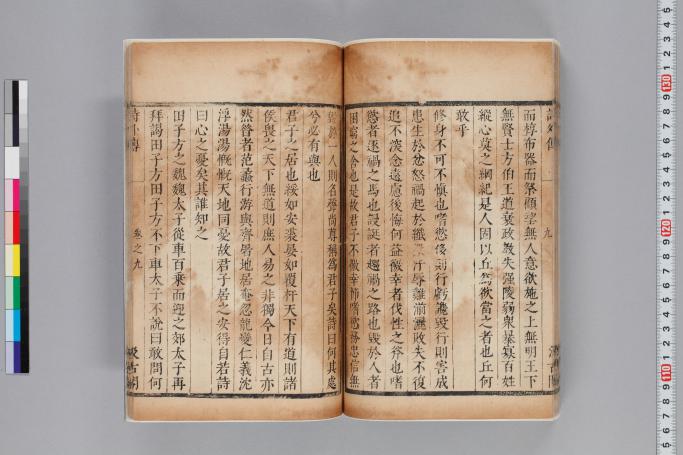 而椁布器而祭顧望無人意欲施之上無明王下
無賢士方伯王道衰政教失强陵弱衆暴寡百姓
縱心莫之綱紀是人固以丘爲欲當之者也丘何
敢乎
修身不可不慎也嗜慾侈則行虧讒毀行則害成
患生於忿怒禍起於纖微汙辱難湔灑敗失不復
追不深念遠慮後悔何益徼幸者伐性之斧也嗜
慾者逐禍之馬也謾誕者趨禍之路也毀於人者
困窮之舍也是故君子不徼幸節嗜慾務忠信無
毀於一人則名聲尚尊稱爲君子矣詩曰何其處
兮必有與也
君子之居也綏如安裘晏如覆杅天下有道則諸
侯畏之天下無道則庶人易之非獨今日自古亦
然昔者范蠡行游與齊屠地居奄忽龍變仁義沈
浮湯湯慨慨天地同憂故君子居之安得自若詩
曰心之憂矣其誰知之
田子方之魏魏太子從車百乘而迎之郊太子再
拜謁田子方田子方不下車太子不說曰敢問何
詩外傳
卷之九
汲古閣